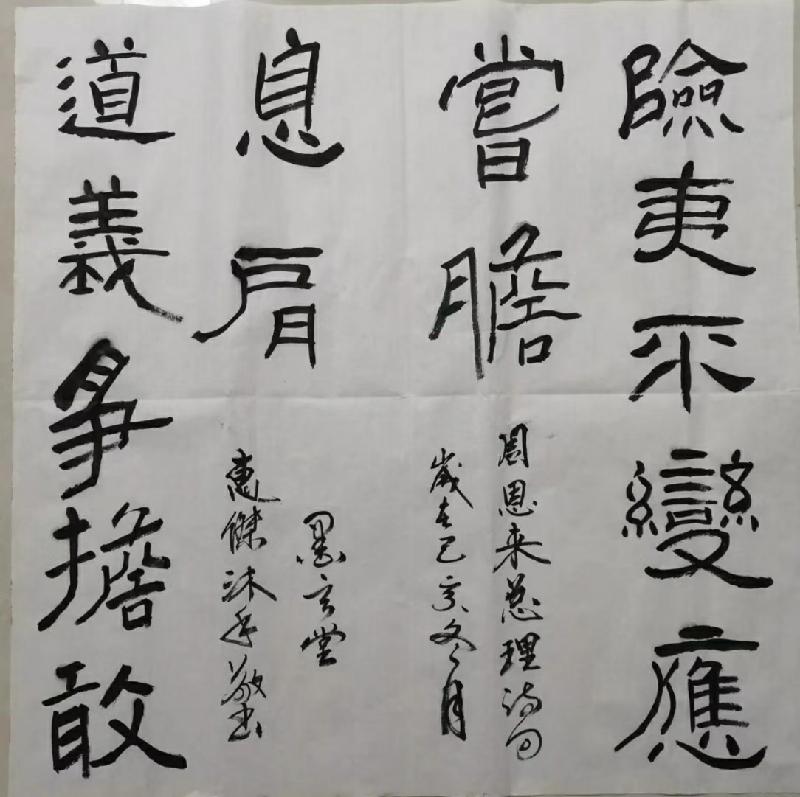 險夷不變應
嘗膽
周恩来总理诗句
歲在己亥冬月
道義爭擔敢
息肩
墨堂
惠傑沐手敬书